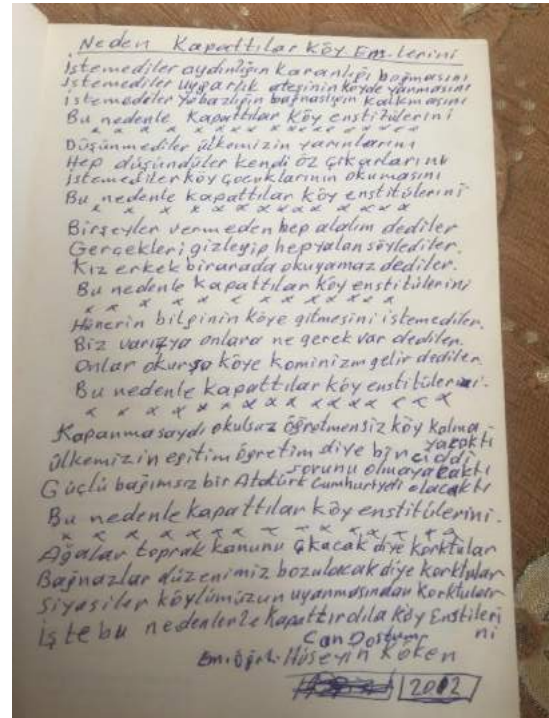 Neden Kapattılar Köy Ens.lerini
İstemediler aydınlığın karanlığı boğmasını
İstemediler uygarlık ateşinin köyde yanmasını
İstemediler yobazlığın bağnazlığın kalkmasını
Bu nedenle Kapattılar Köy enstitülerini
x x x x x x x x x x x x x
Düşünmediler ülkemizin yarınlarını
Hep düşündüler kendi öz çıkarlarını
İstemediler köy çocuklarının okumasını
Bu nedenle kapattılar köy enstitülerini
x x x x x x x x x x x x
Birşeyler vermeden hep alalım dediler
Gerçekleri gizleyip hep yalan söylediler.
Kız erkek birarada okuyamaz dediler.
Bu nedenle kapattılar köy enstitülerini
x x x x x x x x x x x
Hünerin bilginin köye gitmesini istemediler.
Biz varızya onlara ne gerek var dediler.
Onlar okursa köye kominizm gelir dediler.
Bu nedenle kapattılar köy enstitülerini.
x x x x x x x x x x x x
Kapanmasaydı okulsuz öğretmensiz köy kalma
yacaktı
Ülkemizin eğitim öğretim diye bir ciddi
sorunu olmayacaktı
Güçlü bağımsız bir Atatürk Cumhuriyeti olacaktı
Bu nedenle kapattılar köy enstitülerini.
x x x x x x x x x x x x
Ağalar toprak kanunu çıkacak diye korktular
Bağnazlar düzenimiz bozulacak diye korktular
Siyasiler köylümüzün uyanmasından korktular
İşte bu nedenlerle Kapattırdıla Köy Enstileri
ni
Can Dostum
Em. Öğrt. Hüseyin Köken
2012